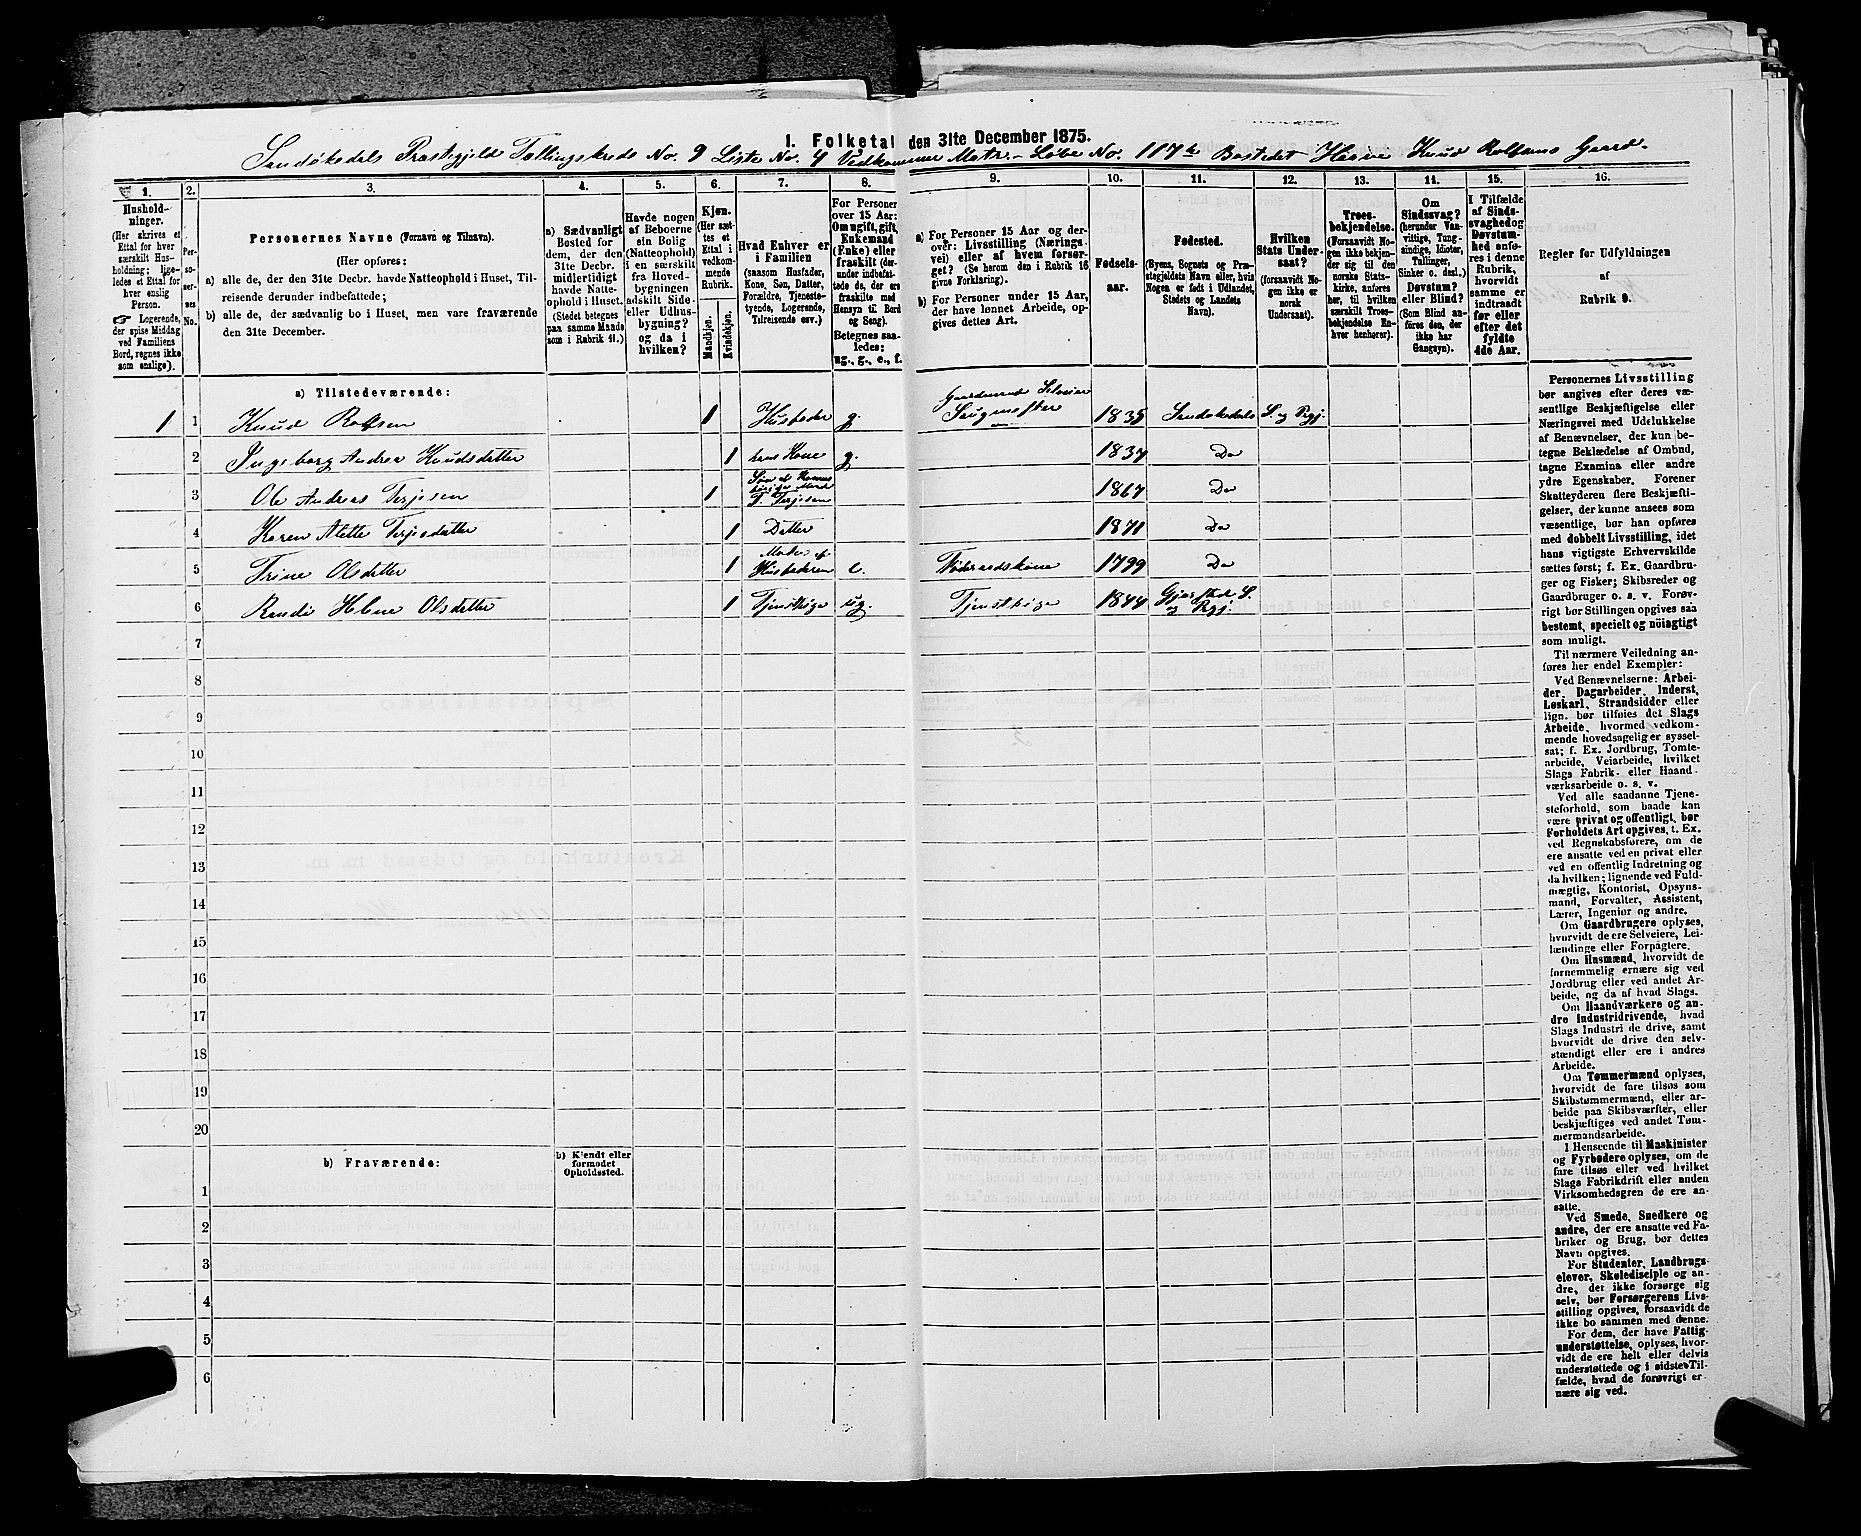 1. Folketal den 31te December 1875.
Sandøkedals Præstegjeld Tællingskreds No. 9 Liste No. 4 Vedkommer Matr. Løbe No. 117 Bostedet Knud Rolfsens Gaard.
1. 2. 3. 4. 5. 6. 7. 8. 9. 10. 11. 12. 13. 14. 15. 16.
Hushold-
ninger.
(Her skrives et
Ettal for hver
særskilt Hus-
holdning; lige-
ledes et Ettal for
hver enslig
Person.
☞ Logerende,
der spise Middag
ved Familiens
Bord, regnes ikke
som enslige).
Per-
so-
ner-
nes
No.
Personernes Navne (Fornavn og Tilnavn).
(Her opføres:
a) alle de, der den 31te Decbr. havde Natteophold i Huset, Til-
reisende derunder indbefattede;
b) alle de, der sædvanlig bo i Huset, men vare fraværende
den 31te December.
a) Sædvanligt
Bosted for
dem, der den
31te Decbr.
midlertidigt
havde Natte-
ophold i Huset.
(Stedet betegnes
paa samme Maade
som i Rubrik 11.)
Havde nogen
af Beboerne
sin Bolig
(Natteophold)
i en særskilt
fra Hoved-
bygningen
adskilt Side-
eller Udhus-
bygning?
og da i
hvilken?
Kjøn.
(Her sæt-
tes et
Ettal i
vedkom-
mende
Rubrik.
Mandkjøn.
Kvindekjøn.
Hvad Enhver er
i Familien
(saasom Husfader,
Kone, Søn, Datter,
Forældre, Tjeneste-
tyende, Logerende,
Tilreisende osv.)
For Personer
over 15 Aar:
Om ugift, gift,
Enkemand
(Enke) eller
fraskilt (der-
under indbefat-
tede de, der ere
fraskilte med
Hensyn til Bord
og Seng).
Betegnes saa-
ledes:
ug., g., e., f.
a) For Personer 15 Aar og der-
over: Livsstilling (Nærings-
vei) eller af hvem forsør-
get? (Se herom den i Rubrik 16
givne Forklaring).
b) For Personer under 15 Aar,
der have lønnet Arbeide, op-
gives dettes Art.
Fødsels-
aar.
Fødested.
(Byens, Sognets og Præ-
stegjeldets Navn eller, hvis
Nogen er født i Udlandet,
Stedets og Landets
Navn).
Hvilken
Stats Under-
saat?
(forsaavidt No-
gen ikke er
norsk
Undersaat).
Troes-
bekjendelse.
(Forsaavidt No-
gen ikke bekjen-
der sig til den
norske Stats-
kirke, anføres
her, til hvilken
særskilt Troes-
bekjendelse En-
hver henhører).
Om
Sindssvag?
(herunder Van-
vittige, Tung-
sindige, Idioter,
Tullinger,
Sinker o. desl.)
Døvstum?
eller Blind?
(Som Blind an-
føres den, der
ikke har
Gangsyn).
I Tilfælde
af Sinds-
svaghed og
Døvstum-
hed anfø-
res i denne
Rubrik,
hvorvidt
samme er
indtraadt
før eller
efter det
fyldte
4de Aar.
Regler for Udfyldningen
af
Rubrik 9.
a) Tilstedeværende:
1 1 Knud Rolfsen 1 Husfader g. Gaardmand Selveier 1835 Sandøkedals S. og Prgj.
2 Ingeborg Andrea Knudsdatter 1 hans Kone g. 1837 Do
3 Ole Andreas Terjesen 1 T. Terjesen 1867 Do
4 Karen Alette Terjesdatter 1 Datter 1871 Do
5 Trine Olsdatter 1 Moder af Husfaderen e. Føderaadskone 1799 Do
6 Randi Helene Olsdatter 1 Tjenstpige ug. Tjenstpige 1844 Gjerstad S. og Prgj.
7
8
9
10
11
12
13
14
15
16
17
18
19
20
b) Fraværende:
b) Kjendt eller
formodet
Opholdssted.
1
2
3
4
5
6
Personernes Livsstilling
bør angives efter deres væ-
sentlige Beskjæftigelse eller
Næringsvei med Udelukkelse
af Benævnelser, der kun be-
tegne Beklædelse af Ombud,
tagne Examina eller andre
ydre Egenskaber. Forener
Skatteyderen flere Beskjæfti-
gelser, der kunne ansees som
væsentlige, bør han opføres
med dobbelt Livsstilling, idet
hans vigtigste Erhvervskilde
sættes først; f. Ex. Gaardbru-
ger og Fisker; Skibsreder og
Gaardbruger o. s. v. Forøv-
rigt bør Stillingen opgives saa
bestemt, specielt og nöiagtigt
som muligt.
Til nærmere Veiledning an-
føres her endel Exempler:
Ved Benævnelserne: Arbei-
der, Dagarbeider, Inderst,
Løskarl, Strandsidder eller
lign. bør tilføies det Slags
Arbeide, hvormed vedkom-
mende hovedsagelig er syssel-
sat; f. Ex. Jordbrug, Tomte-
arbeide, Veiarbeide, hvilket
Slags Fabrik- eller Haand-
værksarbeide o. s. v.
Ved alle saadanne Tjene-
steforhold, som baade kan
være privat og offentligt, bør
Forholdets Art opgives, t. Ex.
ved Regnskabsførere, om de
ere ansatte ved en privat eller
ved en offentlig Indretning og
da hvilken; lignende ved Fuld-
mægtig, Kontorist, Opsyns-
mand, Forvalter, Assistent,
Lærer, Ingeniør og andre.
Om Gaardbrugere oplyses,
hvorvidt de ere Selveiere, Lei-
lændinge eller Forpagtere.
Om Husmænd, hvorvidt de
fornemmelig ernære sig ved
Jordbrug eller ved andet Ar-
beide, og da af hvad Slags.
Om Haandværkere og an-
dre Industridrivende, hvad
Slags Industri de drive, samt
hvorvidt de drive den selv-
stændigt eller ere i andres
Arbeide.
Om Tømmermænd oplyses,
hvorvidt de fare tilsøs som
Skibstømmermænd, eller ar-
beide paa Skibsværfter, eller
beskjæftiges ved andet Tøm-
mermandsarbeide.
I Henseende til Maskinister
og Fyrbødere oplyses, om de
fare tilsøs eller ved hvilket
Slags Fabrikdrift eller anden
Virksomhedsgren de ere an-
satte.
Ved Smede, Snedkere og
andre, der ere ansatte ved Fa-
briker og Brug, bør dettes
Navn opgives.
For Studenter, Landbrugs-
elever, Skoledisciple og an-
dre, der ikke forsørge sig
selv, bør Forsørgerens Livs-
stilling opgives, forsaavidt de
ikke bo sammen med denne.
For dem, der have Fattig-
understøttelse, oplyses, hvor-
vidt de ere helt eller delvis
understøttede og i sidste Til-
fælde, hvad de forøvrigt er-
nære sig ved.